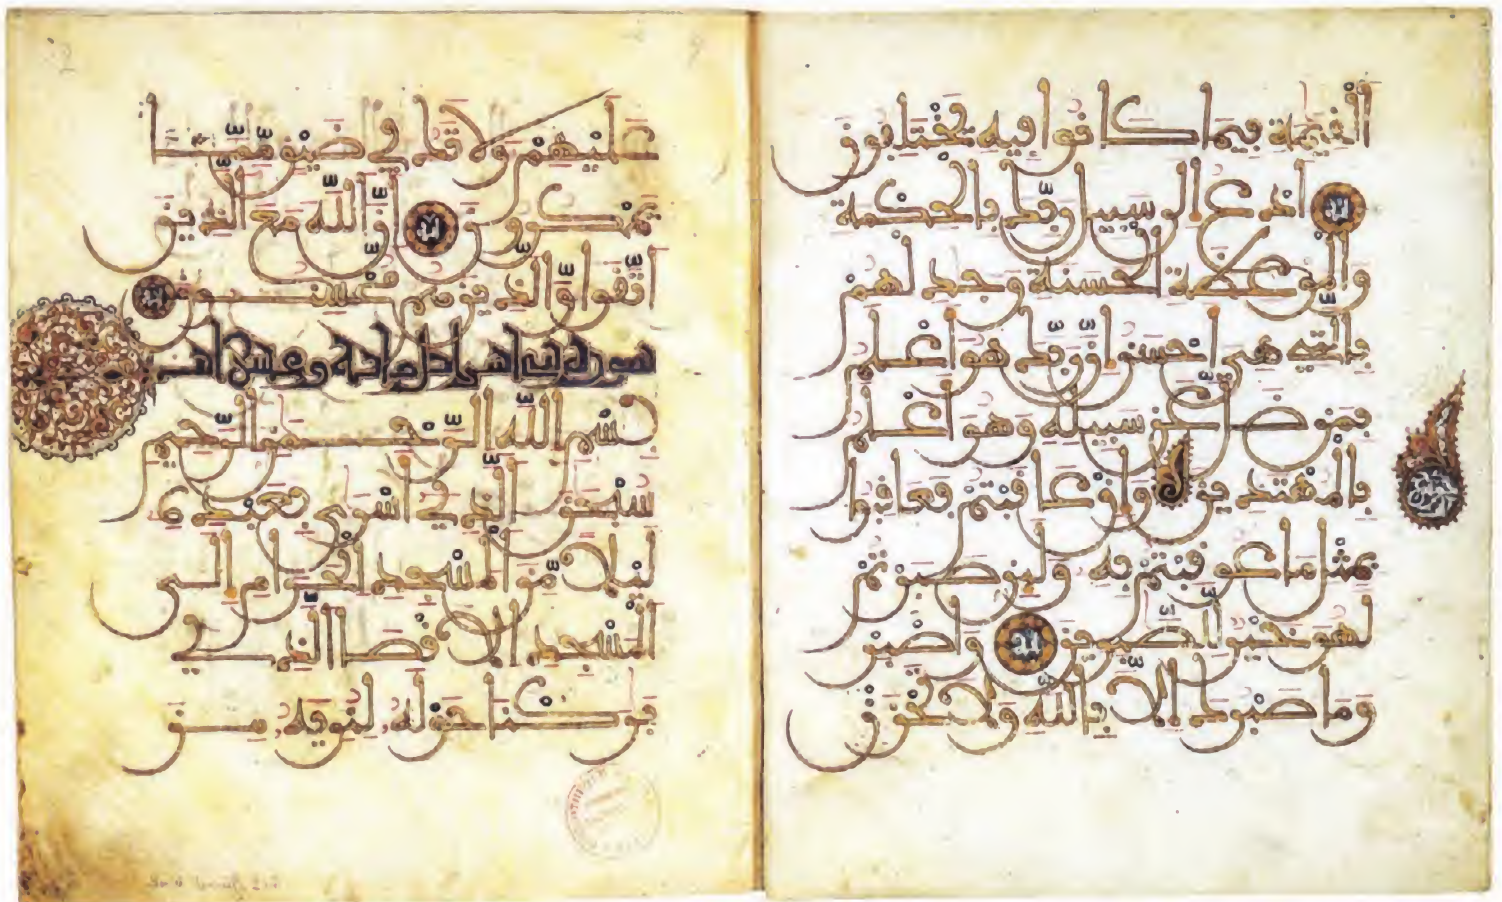 القيمة فيما كانوا فيه يختلفون
ادع الى سبيل ربك بالحكمة
والموعظة الحسنة وجدلهم
بالتي هي احسن ان ربك هو اعلم
بمن ضل عن سبيله وهو اعلم
بالمهتدين وان عاقبتم فعاقبوا
بمثل ما عوقبتم به ولين صبرتم
لهو خير للصبرين واصبر
وما صبرك الا بالله ولا تحزن
عليهم ولا تك في ضيق مما
يمكرون ان الله مع الذين
اتقوا والذين هم محسنون
سورة بني اسرايل ماية وعشر ايت
بسم الله الرحمن الرحيم
سبحن الذي اسرى بعبده
ليلا من المسجد الحرام الى
المسجد الاقصا الذي
بركنا حوله لنريه من